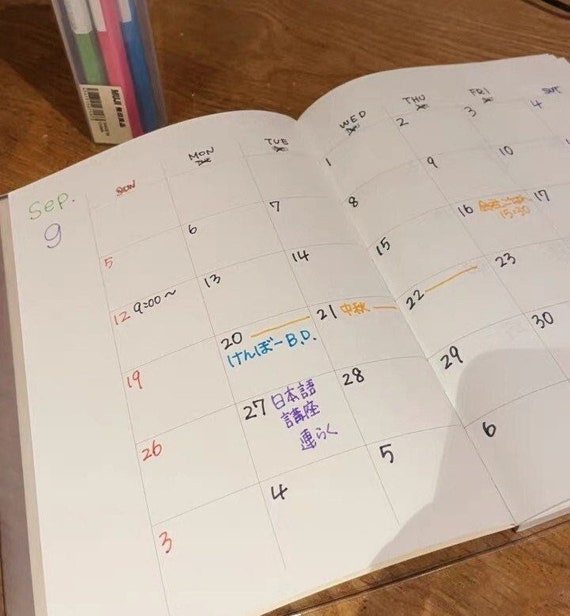 MUJ
Sep.
9
SUN
MON
TUE
WED
THU
FRI
SAT
1
2
3
4
5
6
7
8
9
10
12 9:00~
13
14
15
16
15:30
17
19
20
けんぼーB.D.
21 中秋
22
23
26
27 日本語
講座
連らく
28
29
30
3
4
5
6